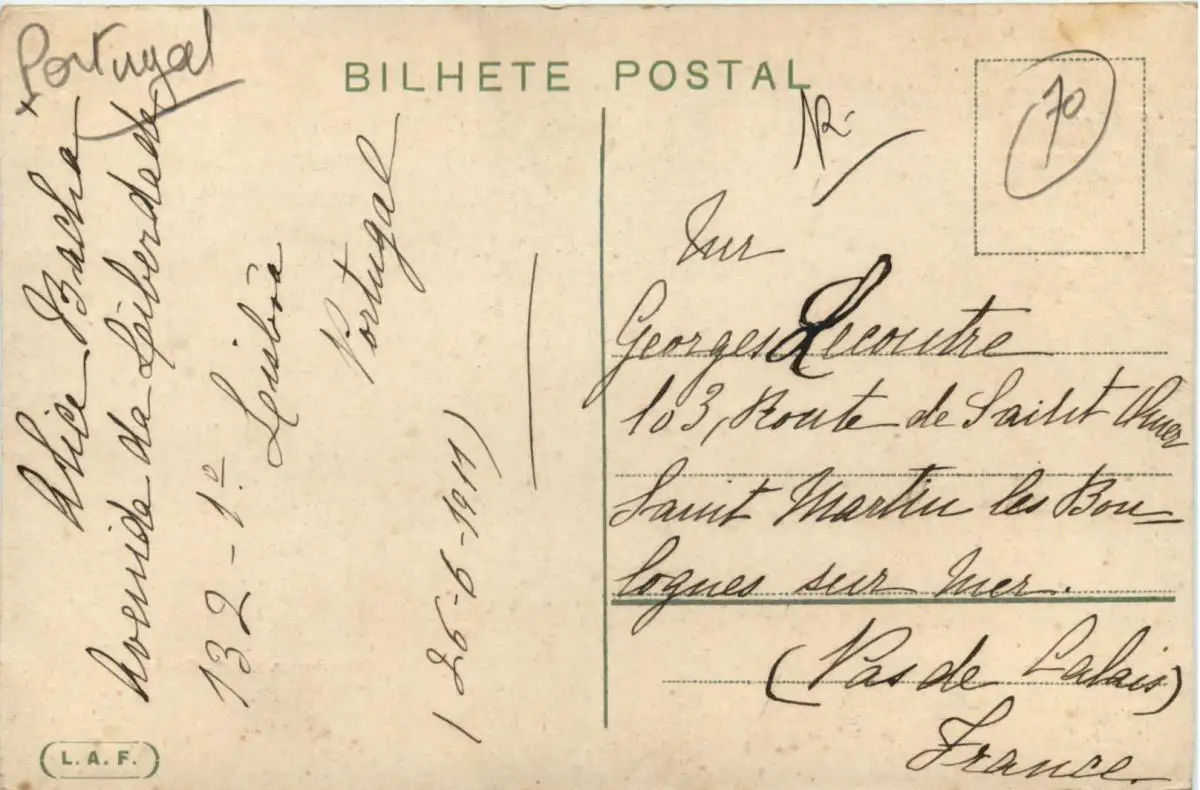 Portugal
BILHETE POSTAL
70
Alice Bacha
Avenida da Liberdade
132-1.º
Lisbôa
Portugal
(26-6-1911)
Mur
Georges Lecoutre
103, Route de Saint Omer
Saint Martin les Bou-
lognes sur mer.
(Pas de Calais)
France.
L. A. F.